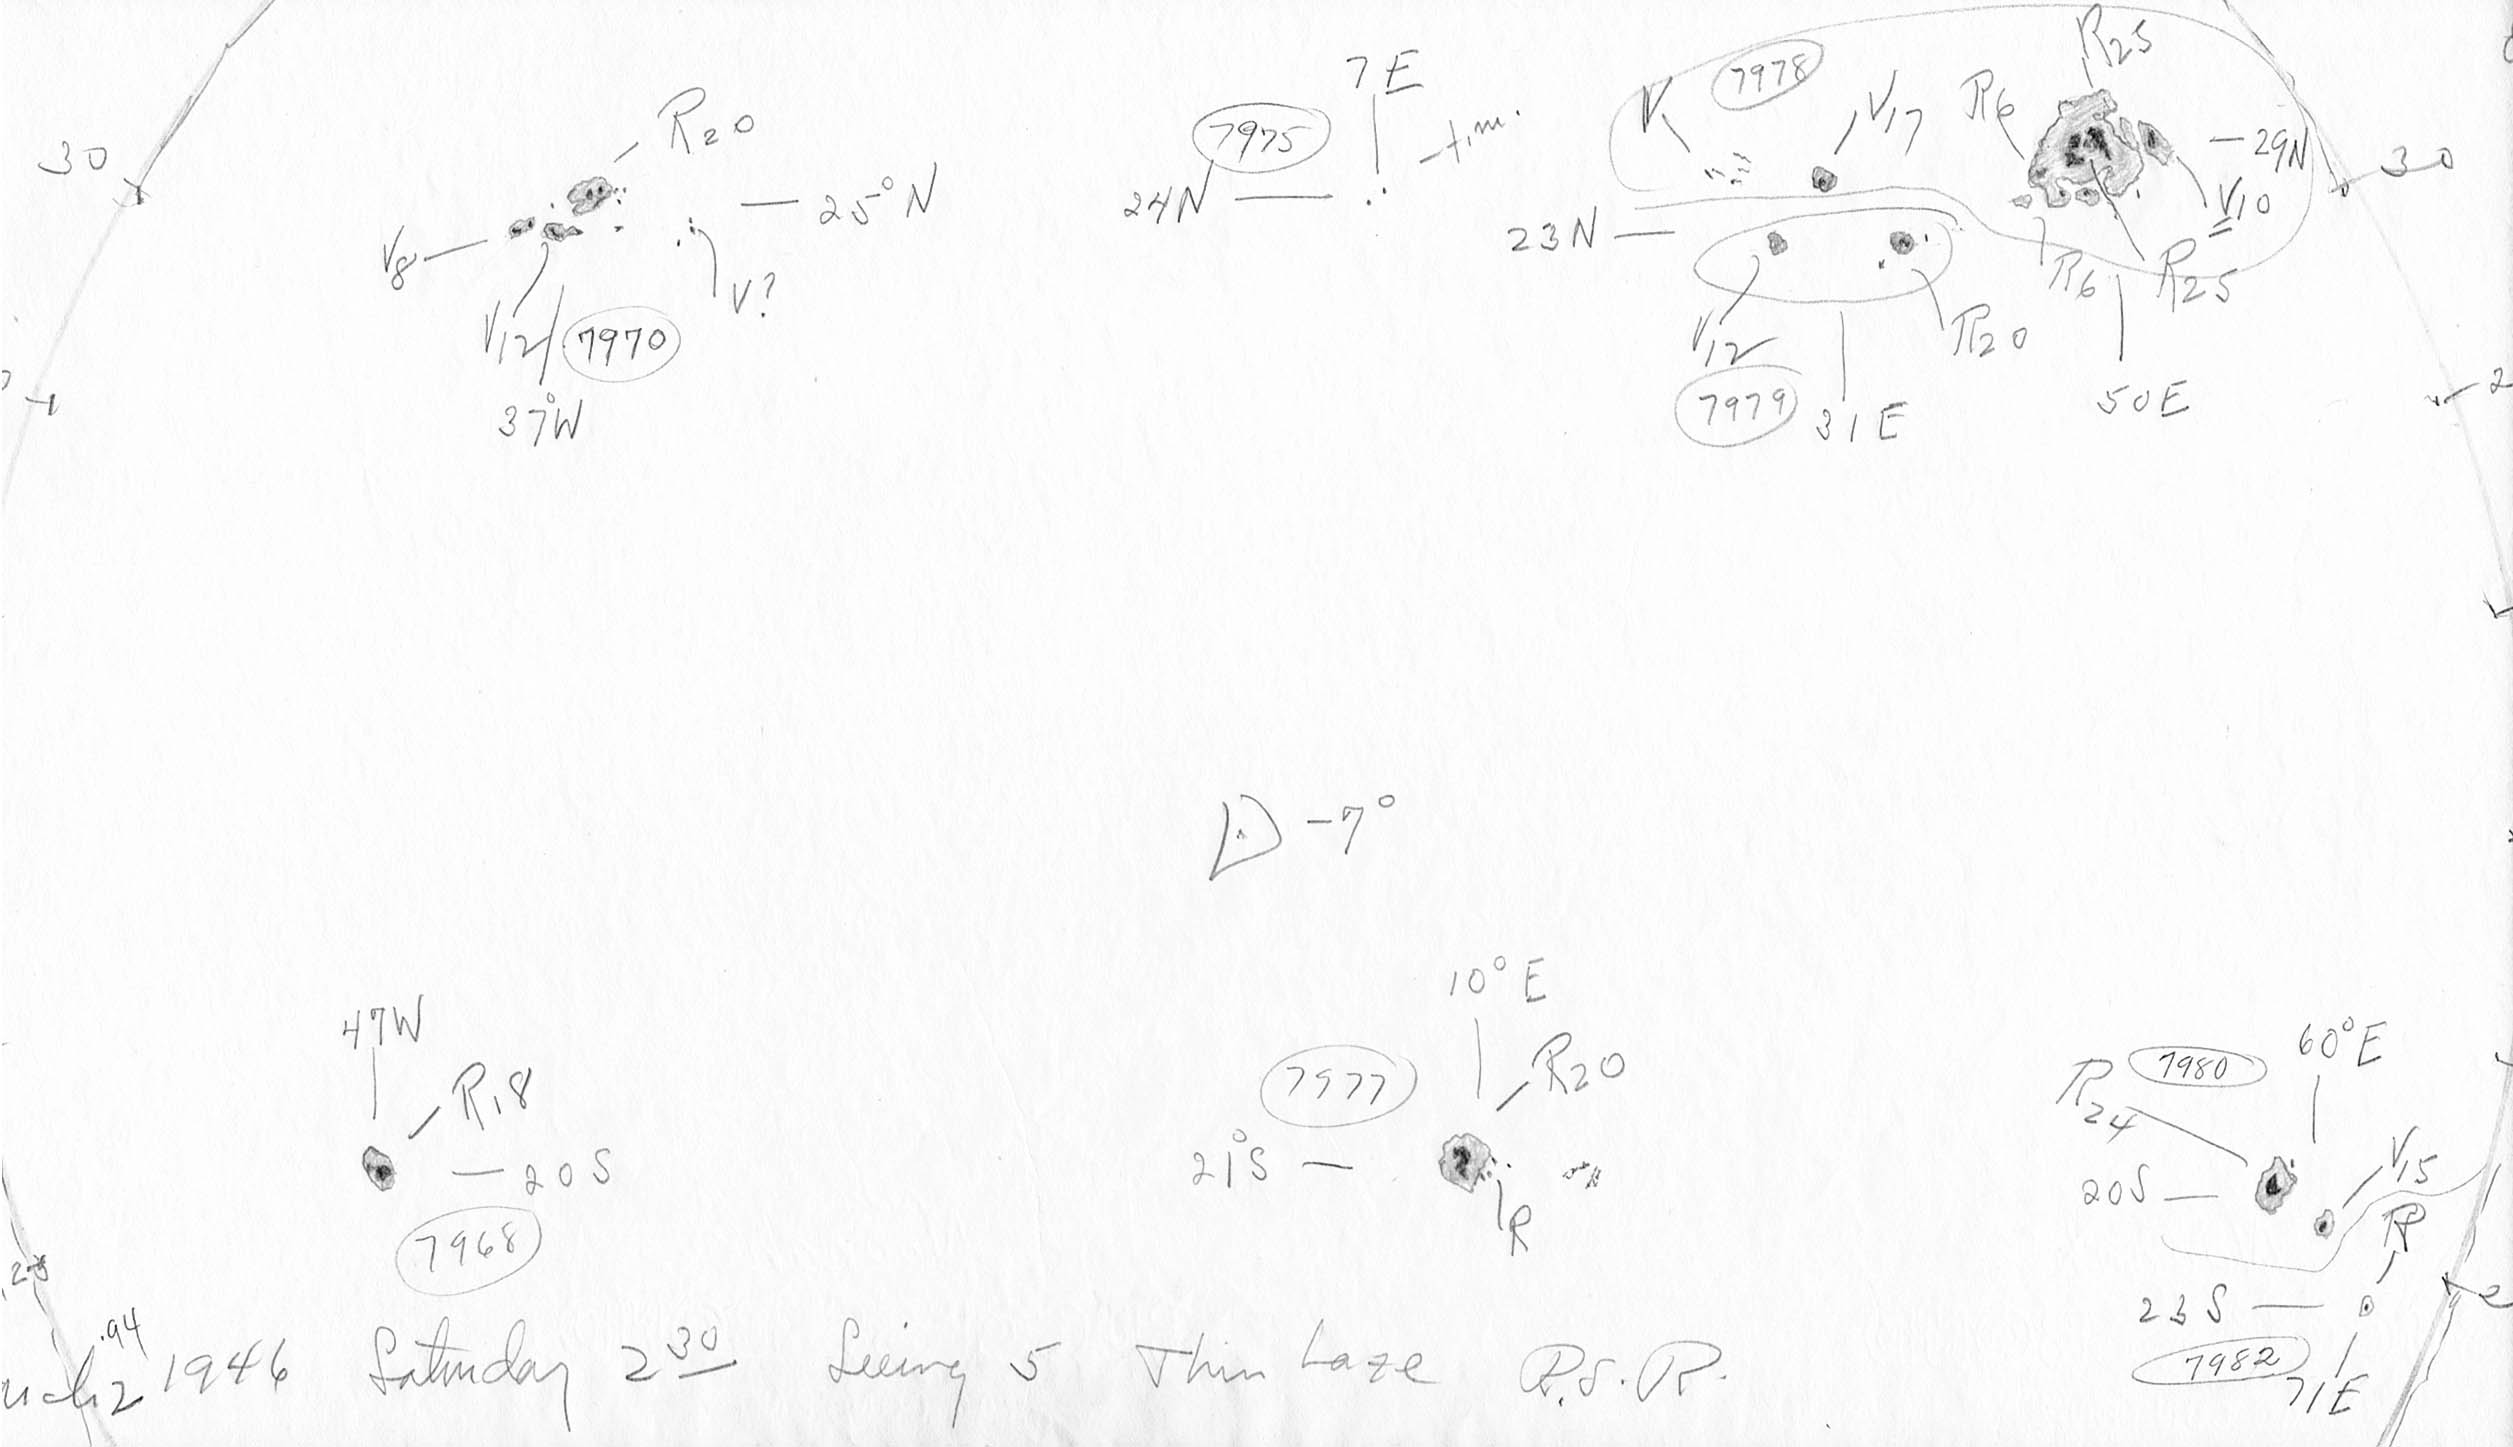 R25
7E
7978
V
V17
R6
30
R20
7975
-tim.
-29N
30
24N
25°N
V10
23N
V8
V?
R6
R25
V12
7970
V12
R20
37°W
7979
31E
50E
2
-7°
10°E
47W
R18
7977
R20
R24
7980
60°E
V15
21°S
20S
20S
R
R
7968
23
23S
2
.94
2 1946 Saturday 2 30 Seeing 5 Thin haze R.S.R.
7982
71E